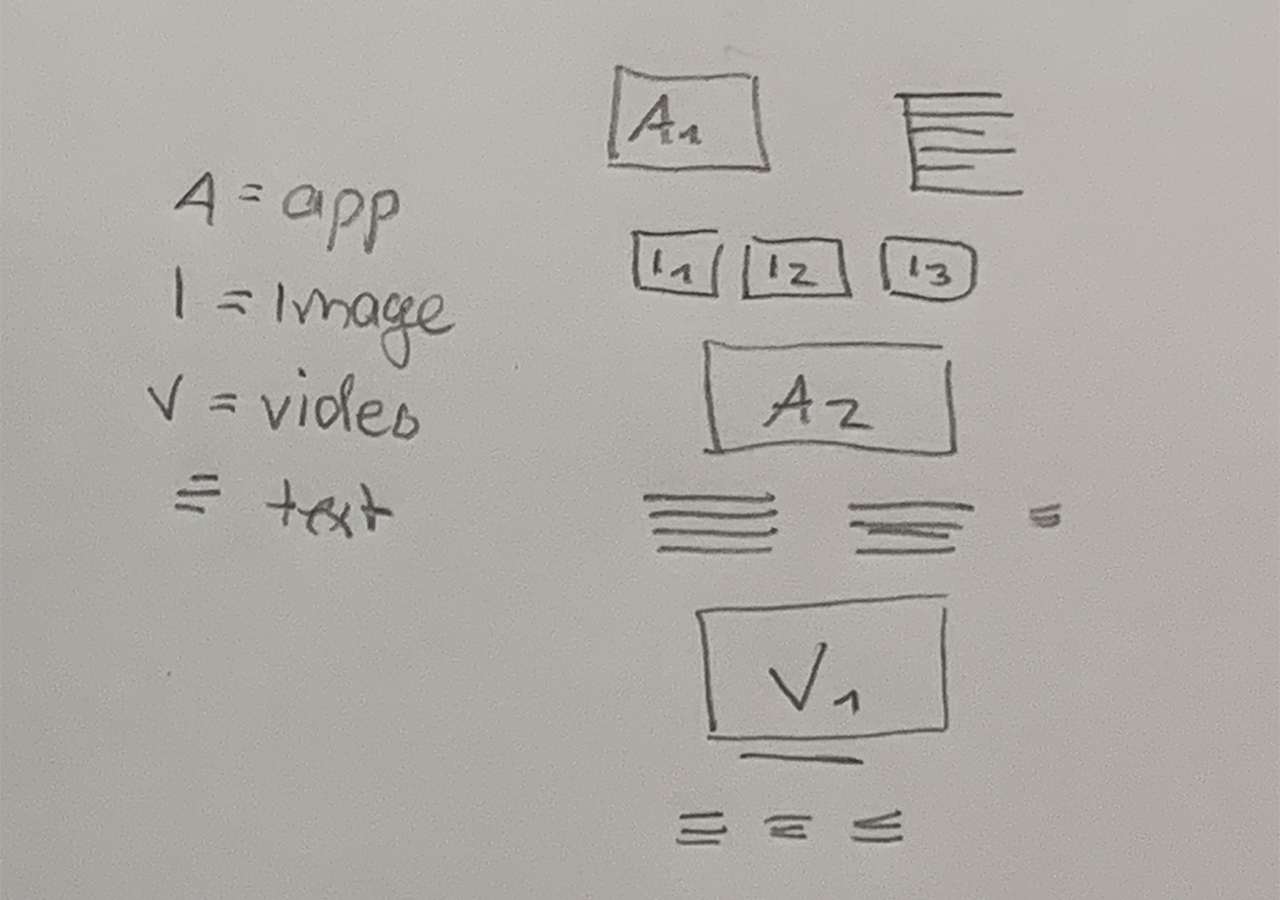 A = app
I = Image
V = video
= text
A1
I1 I2 I3
A2
V1